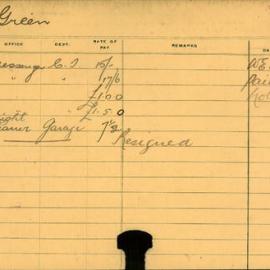 Green
OFFICE DEPT. RATE OF PAY REMARKS DA
essenger C.I. 15/-
" " 17/6
£1.0.0
" £1.5.0
ight
eaner Garage 7½ Resigned